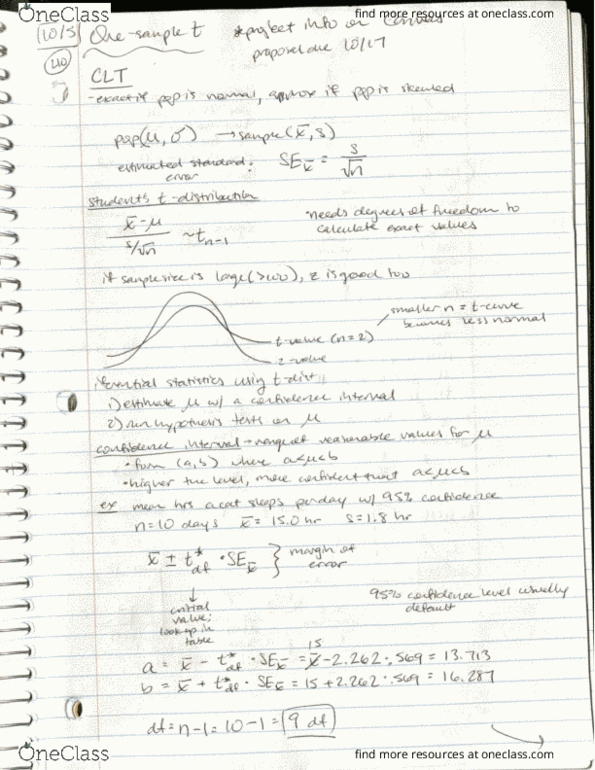 OneClass
find more resources at oneclass.com
10/5 One-sample t *project info on Canvas
proposal due 10/17
CLT
-exact if pop is normal, approx if pop is skewed
pop(μ, σ) → sample(x̄, s)
estimated standard error: SE_x̄ = s/√n
students t-distribution
(x̄-μ)/(s/√n) ~ t_n-1
•needs degrees of freedom to
calculate exact values
if sample size is large (>100), z is good too
smaller n = t-curve
becomes less normal
t-value (n=2)
z-value
inferential statistics using t-dist
1) estimate μ w/ a confidence interval
2) run hypothesis tests on μ
confidence interval → range of reasonable values for μ
•form (a,b) where a<μ<b
•higher the level, more confident that a<μ<b
ex mean hrs a cat sleeps per day w/ 95% confidence
n=10 days x̄ = 15.0 hr s=1.8 hr
x̄ ± t*_df · SE_x̄ } margin of
error
↓
critical
value;
look up in
table
95% confidence level usually
default
15
a = x̄ - t*_df · SE_x̄ = x̄-2.262·.569 = 13.713
b = x̄ + t*_df · SE_x̄ = 15+2.262·.569 = 16.287
df = n-1 = 10-1 = 9 df
OneClass
find more resources at oneclass.com